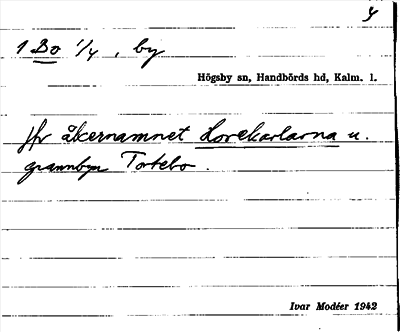 4
1 Bo 1/4, by
Högsby sn, Handbörds hd, Kalm. l.
Jfr åkernamnet Lorekarlarna u.
grannbyn Torkebo.
Ivar Modéer 1942